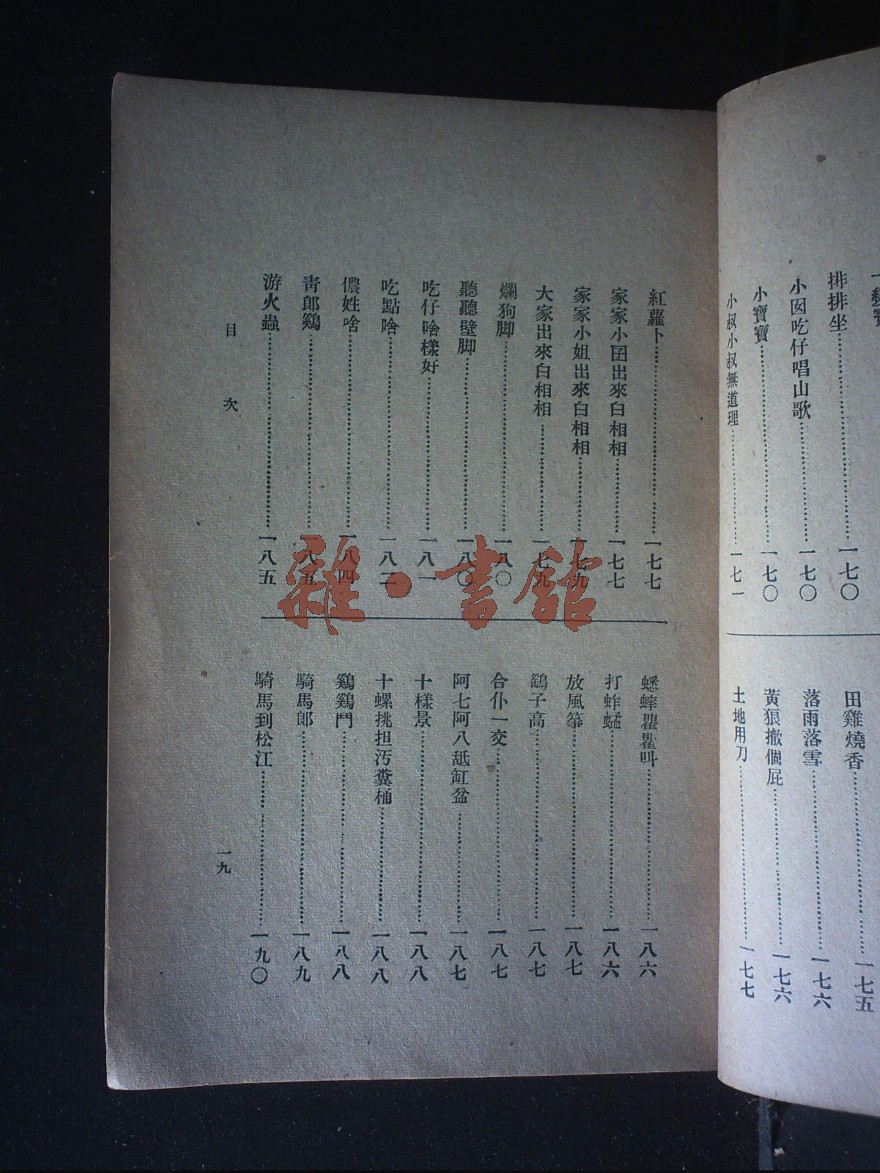 排排坐⋯⋯一七〇
小囡吃仔唱山歌⋯⋯一七〇
小寶寶⋯⋯一七〇
小叔小叔無道理⋯⋯一七一
田雞燒香⋯⋯一七五
落雨落雪⋯⋯一七六
黃狼撒個屁⋯⋯一七六
土地用刀⋯⋯一七七
紅蘿卜⋯⋯一七七
家家小囝出來白相相⋯⋯一七七
家家小姐出來白相相⋯⋯一七九
大家出來白相相⋯⋯一七九
爛狗脚⋯⋯一八〇
聽聽壁脚⋯⋯一八〇
吃仔啥樣好⋯⋯一八一
吃點啥⋯⋯一八二
儂姓啥⋯⋯一八四
靑郎鷄⋯⋯一八五
游火蟲⋯⋯一八五
蟋蟀瞿瞿叫⋯⋯一八六
打蚱蜢⋯⋯一八六
放風箏⋯⋯一八七
鷂子高⋯⋯一八七
合仆一交⋯⋯一八七
阿七阿八舐缸盆⋯⋯一八七
十樣景⋯⋯一八八
十螺挑担汚糞桶⋯⋯一八八
鷄鷄鬥⋯⋯一八八
騎馬郎⋯⋯一八九
騎馬到松江⋯⋯一九〇
目次
一九
雜·書館